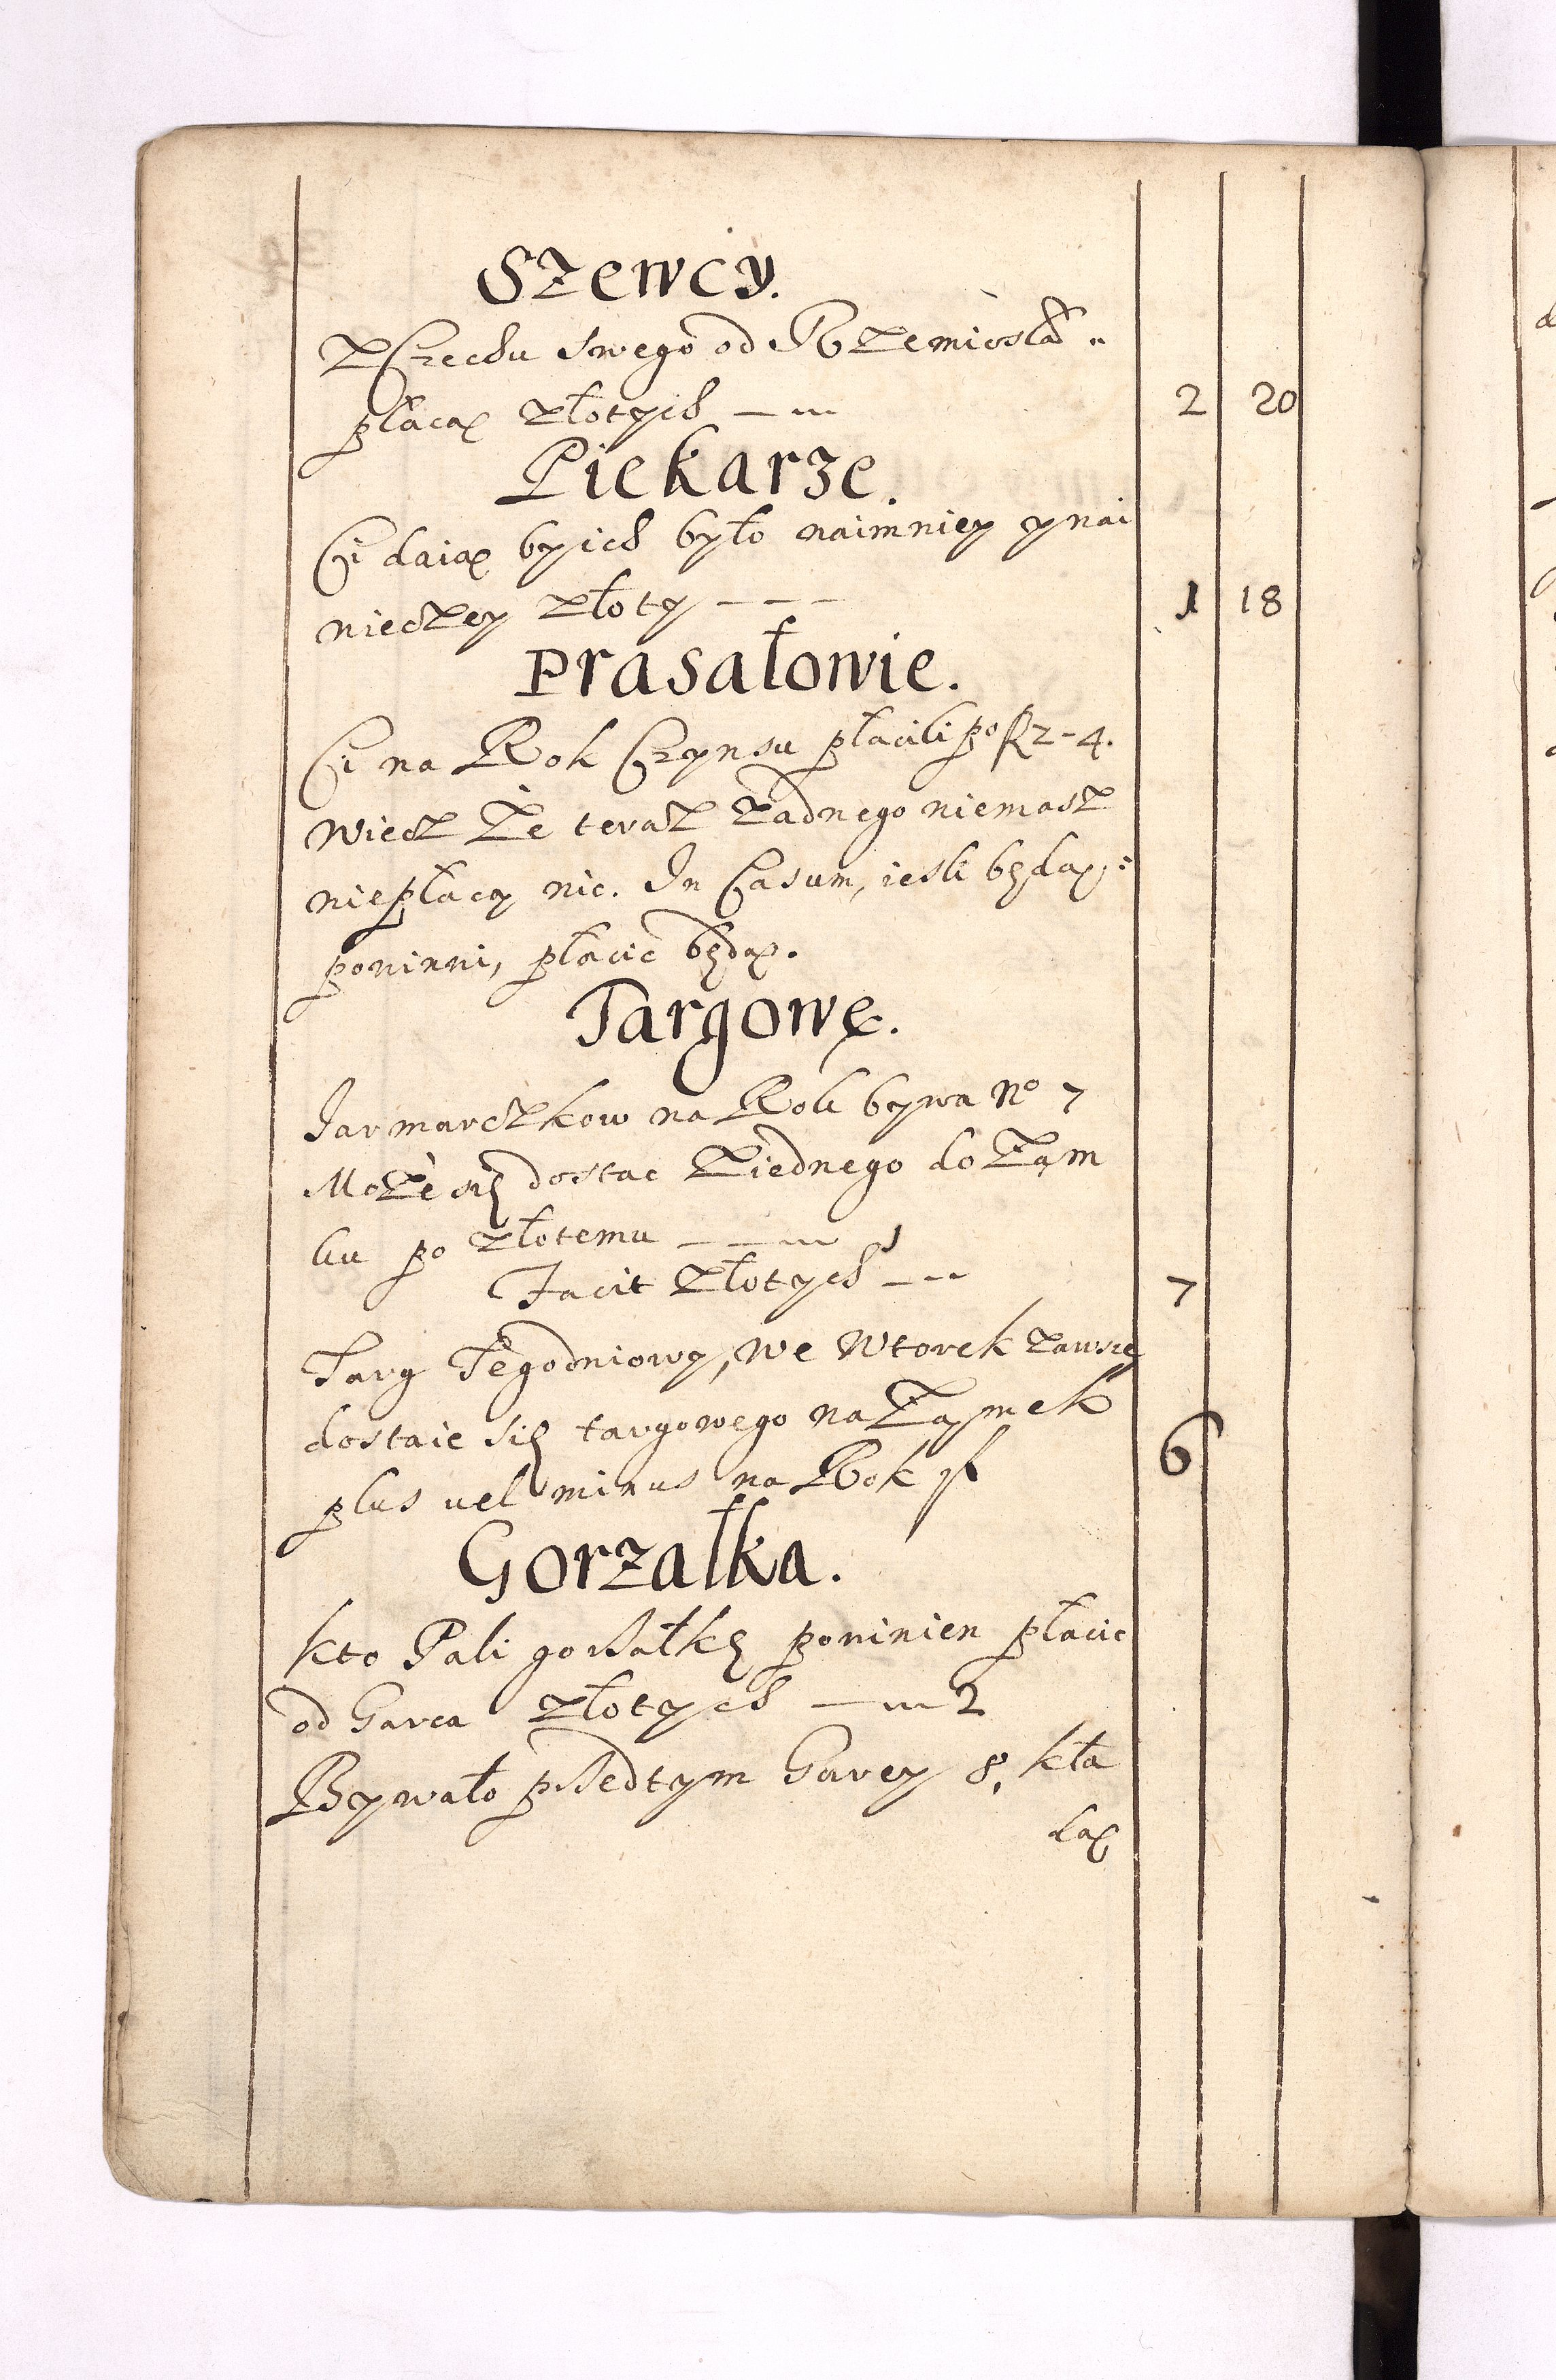 Szewcy.
Z Czechu swego od Rzemiosła „
płacą złotych — 2 20
Piekarze.
Ci daią by ich było naimniey y nai
więczey złoty — — — 1 18
Prasałowie.
Ci na Rok Czynsu płacili po R 2 - 4.
Wiecz że teraz żadnego niemasz
niepłacą nic. In Casum, iesli będą :
powinni, płacić będą.
Targowę.
Jarmarczkow na Rok bywa No 7
Może się dostac z iednego do Zam
ku po złotemu — — 1
Facit złotych — — 7
Targ Tegodniowy, we Wtorek zawsze
dostaie się targowego na Zamek
plus vel minus na Rok zł 6
Gorzałka.
kto Pali gorzałkę powinien płacic
od Garca złotych — 2
Bywało przedtym Garcy 8, kła
dą